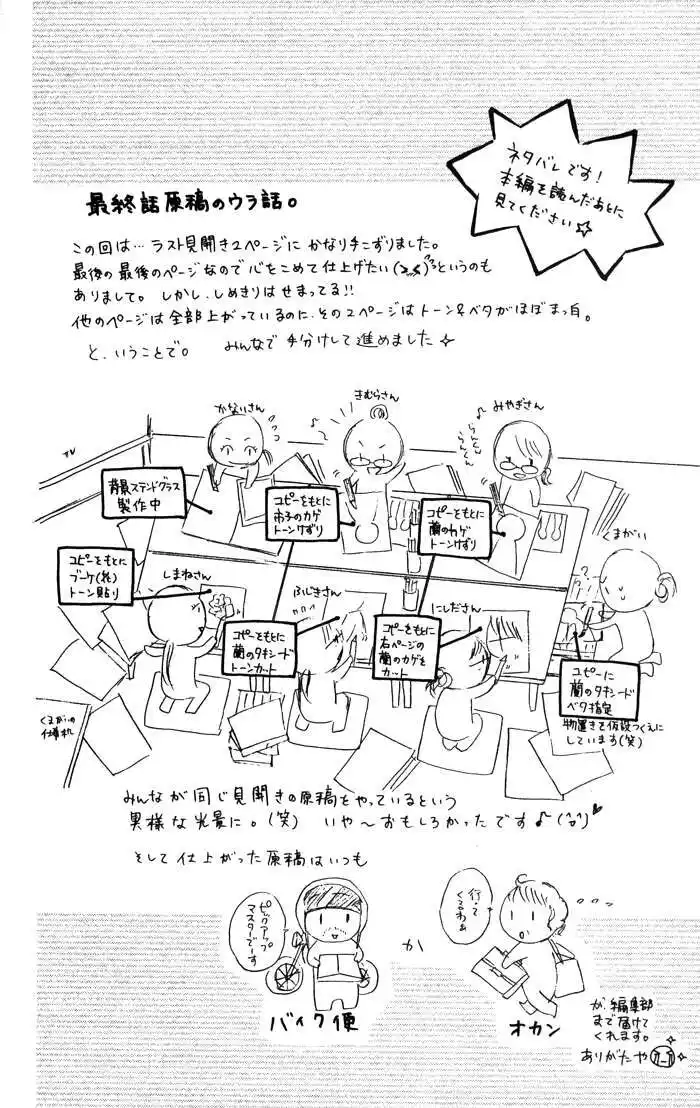 ネタバレです!
本編を読んだあとに
見てください☆
最終話原稿のウラ話。
この回は…ラスト見開き2ページに かなり手こずりました。
最後の最後のページなので心をこめて仕上げたい というのも
ありまして。しかし、しめきりはせまってる!!
他のページは全部上がっているのに、その2ページはトーン&ベタがほぼまっ白。
と、いうことで。 みんなで手分けして進めました☆
かないさん
きむらさん
みやぎさん
らんらん
らんらん
TV
背景ステンドグラス
製作中
コピーをもとに
市子のカゲ
トーンけずり
コピーをもとに
蘭のカゲ
トーンけずり
くまがい
コピーをもとに
ブーケ(花)
トーン貼り
しまねさん
ふじきさん
カリカリ
にしださん
コピーをもとに
蘭のタキシード
トーンカット
コピーをもとに
右ページの
蘭のカゲを
カット
コピーに
蘭のタキシード
ベタ指定
物置きを仮設つくえに
しています(笑)
くまがいの
仕事机
みんなが同じ見開きの原稿をやっているという
異様な光景に。(笑) いや〜おもしろかったです♪
そして仕上がった原稿はいつも
ピックアップ
マスターです
バイク便
か
行って
くるわぁ
オカン
が、編集部
まで届けて
くれます。
ありがたや